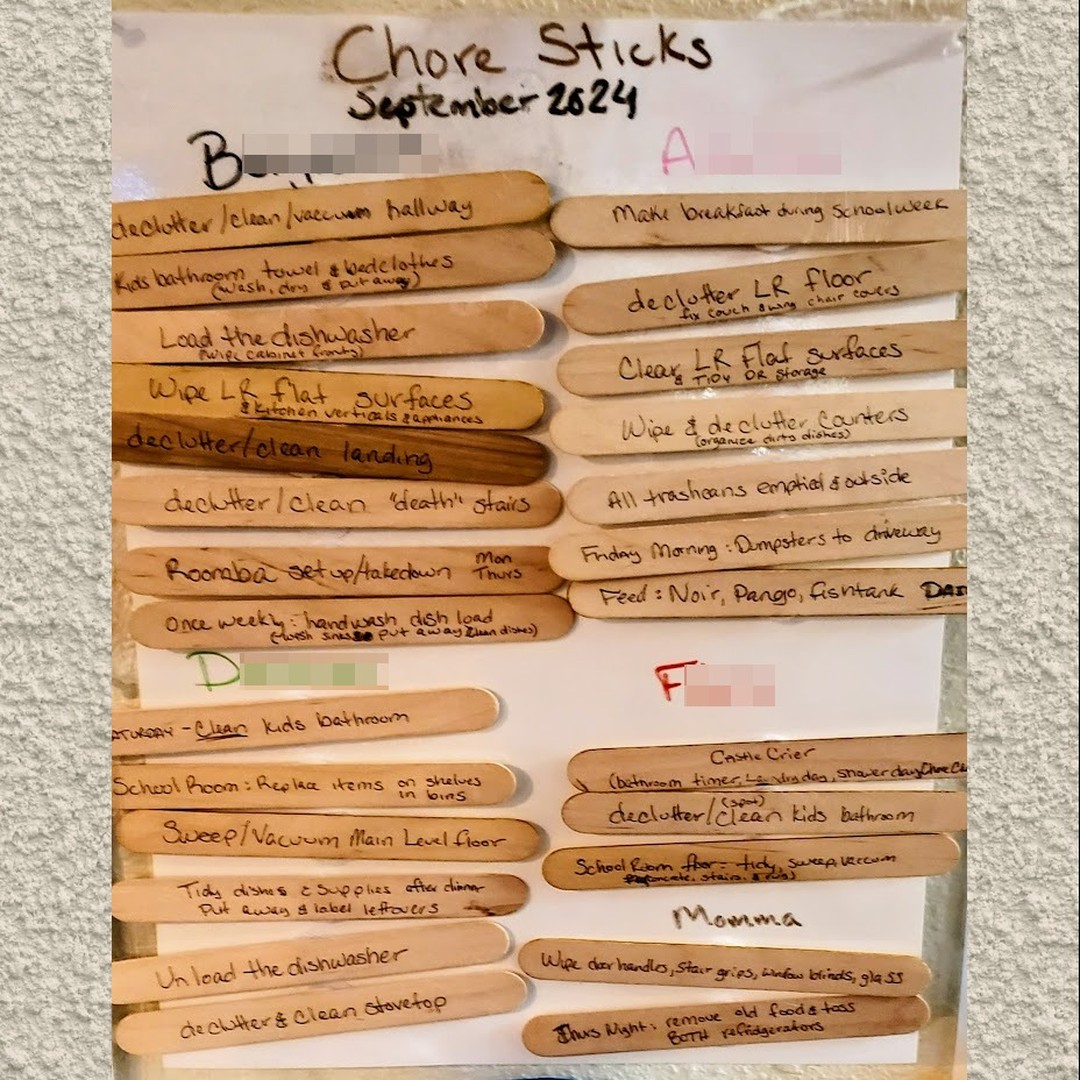 Chore Sticks
September 2024
B
declutter/clean/vaccuum hallway
Kids bathroom towel & bedclothes
(wash, dry & put away)
Load the dishwasher
(wipe cabinet fronts)
Wipe LR flat surfaces
& kitchen verticals & appliances
declutter/clean landing
declutter/clean "death" stairs
Roomba setup/takedown Mon
Thurs
Once weekly: handwash dish load
put away clean dishes)
A
Make breakfast during school week
declutter LR floor
fix couch & wing chair covers
Clear LR flat surfaces
& TIDY DR storage
Wipe & declutter counters
(organize dirty dishes)
All trashcans emptied & outside
Friday Morning: Dumpsters to driveway
Feed: Noir, Pango, fishtank
D
- Clean kids bathroom
School Room: Replace items on shelves
in bins
Sweep/Vacuum Main Level floor
Tidy dishes & supplies after dinner
Put away & label leftovers
Unload the dishwasher
declutter & clean stovetop
F
Castle Crier
(bathroom timer, Laundry day, shower day,
declutter/(spot) clean kids bathroom
School Room floor: tidy, sweep, vaccum
stairs, & rug)
Momma
Wipe door handles, stair grips, window blinds, glass
Thurs Night: remove old food & toss
BOTH refridgerators